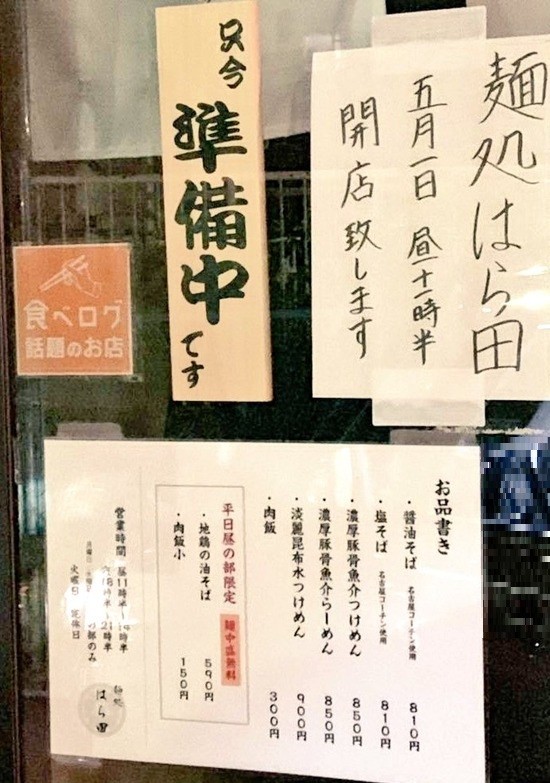 麺処はら田
五月一日 昼十一時半
開店致します
只今
準備中
です
食べログ
話題のお店
お品書き
・醤油そば 名古屋コーチン使用 810円
・塩そば 名古屋コーチン使用 810円
・濃厚豚骨魚介つけめん 850円
・濃厚豚骨魚介らーめん 850円
・淡麗昆布水つけめん 900円
・肉飯 300円
平日昼の部限定 麺中盛無料
・地鶏の油そば 590円
・肉飯小 150円
営業時間 昼11時半〜14時
夜18時半〜21時半
の部のみ
火曜日 定休日
麺処
はら田